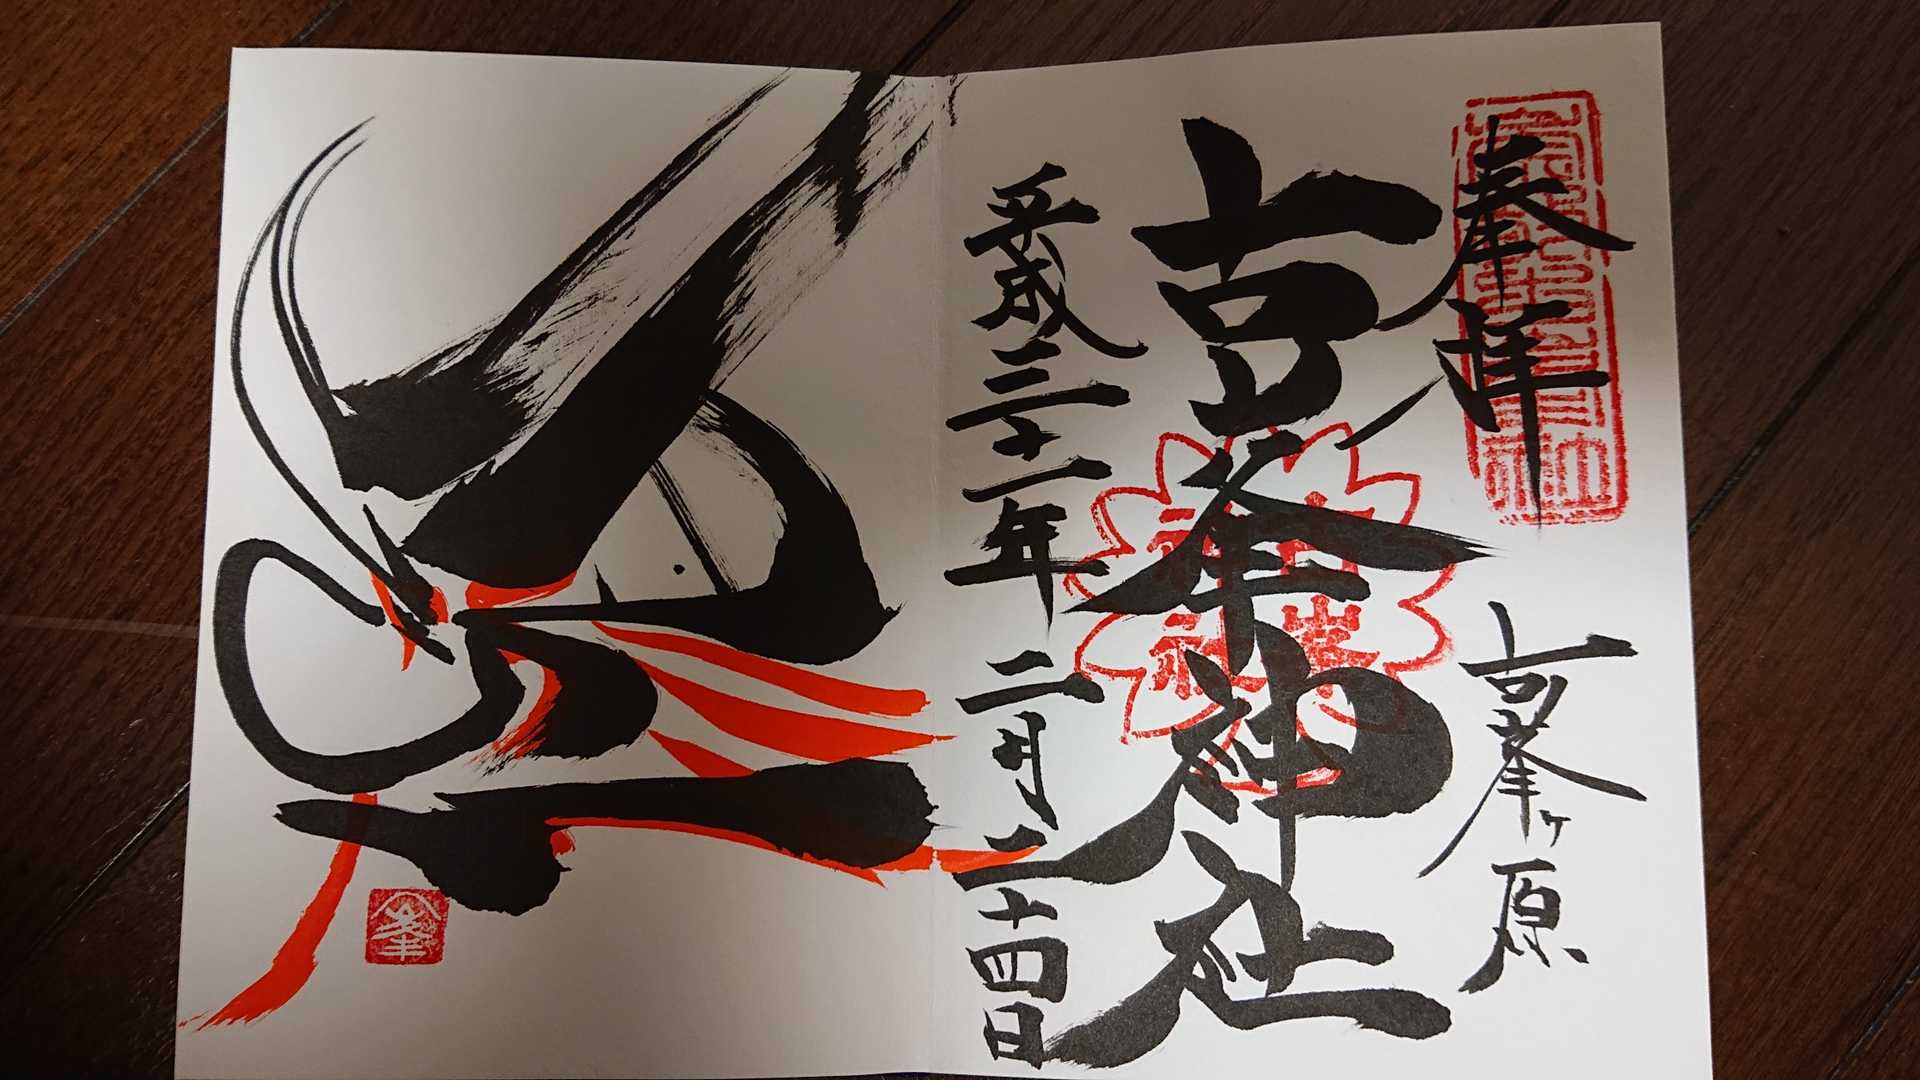 奉拝
古峯ヶ原
古峯神社
平成三十一年二月二十四日
峯